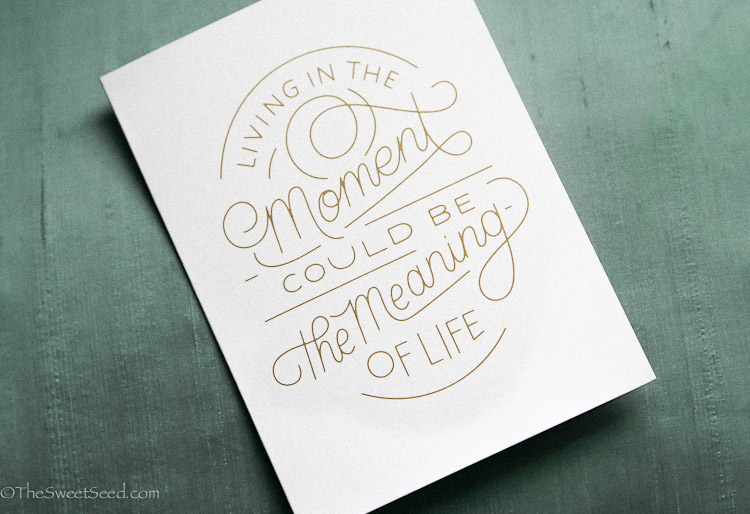 LIVING IN THE
Moment
COULD BE
the Meaning
OF LIFE
©TheSweetSeed.com